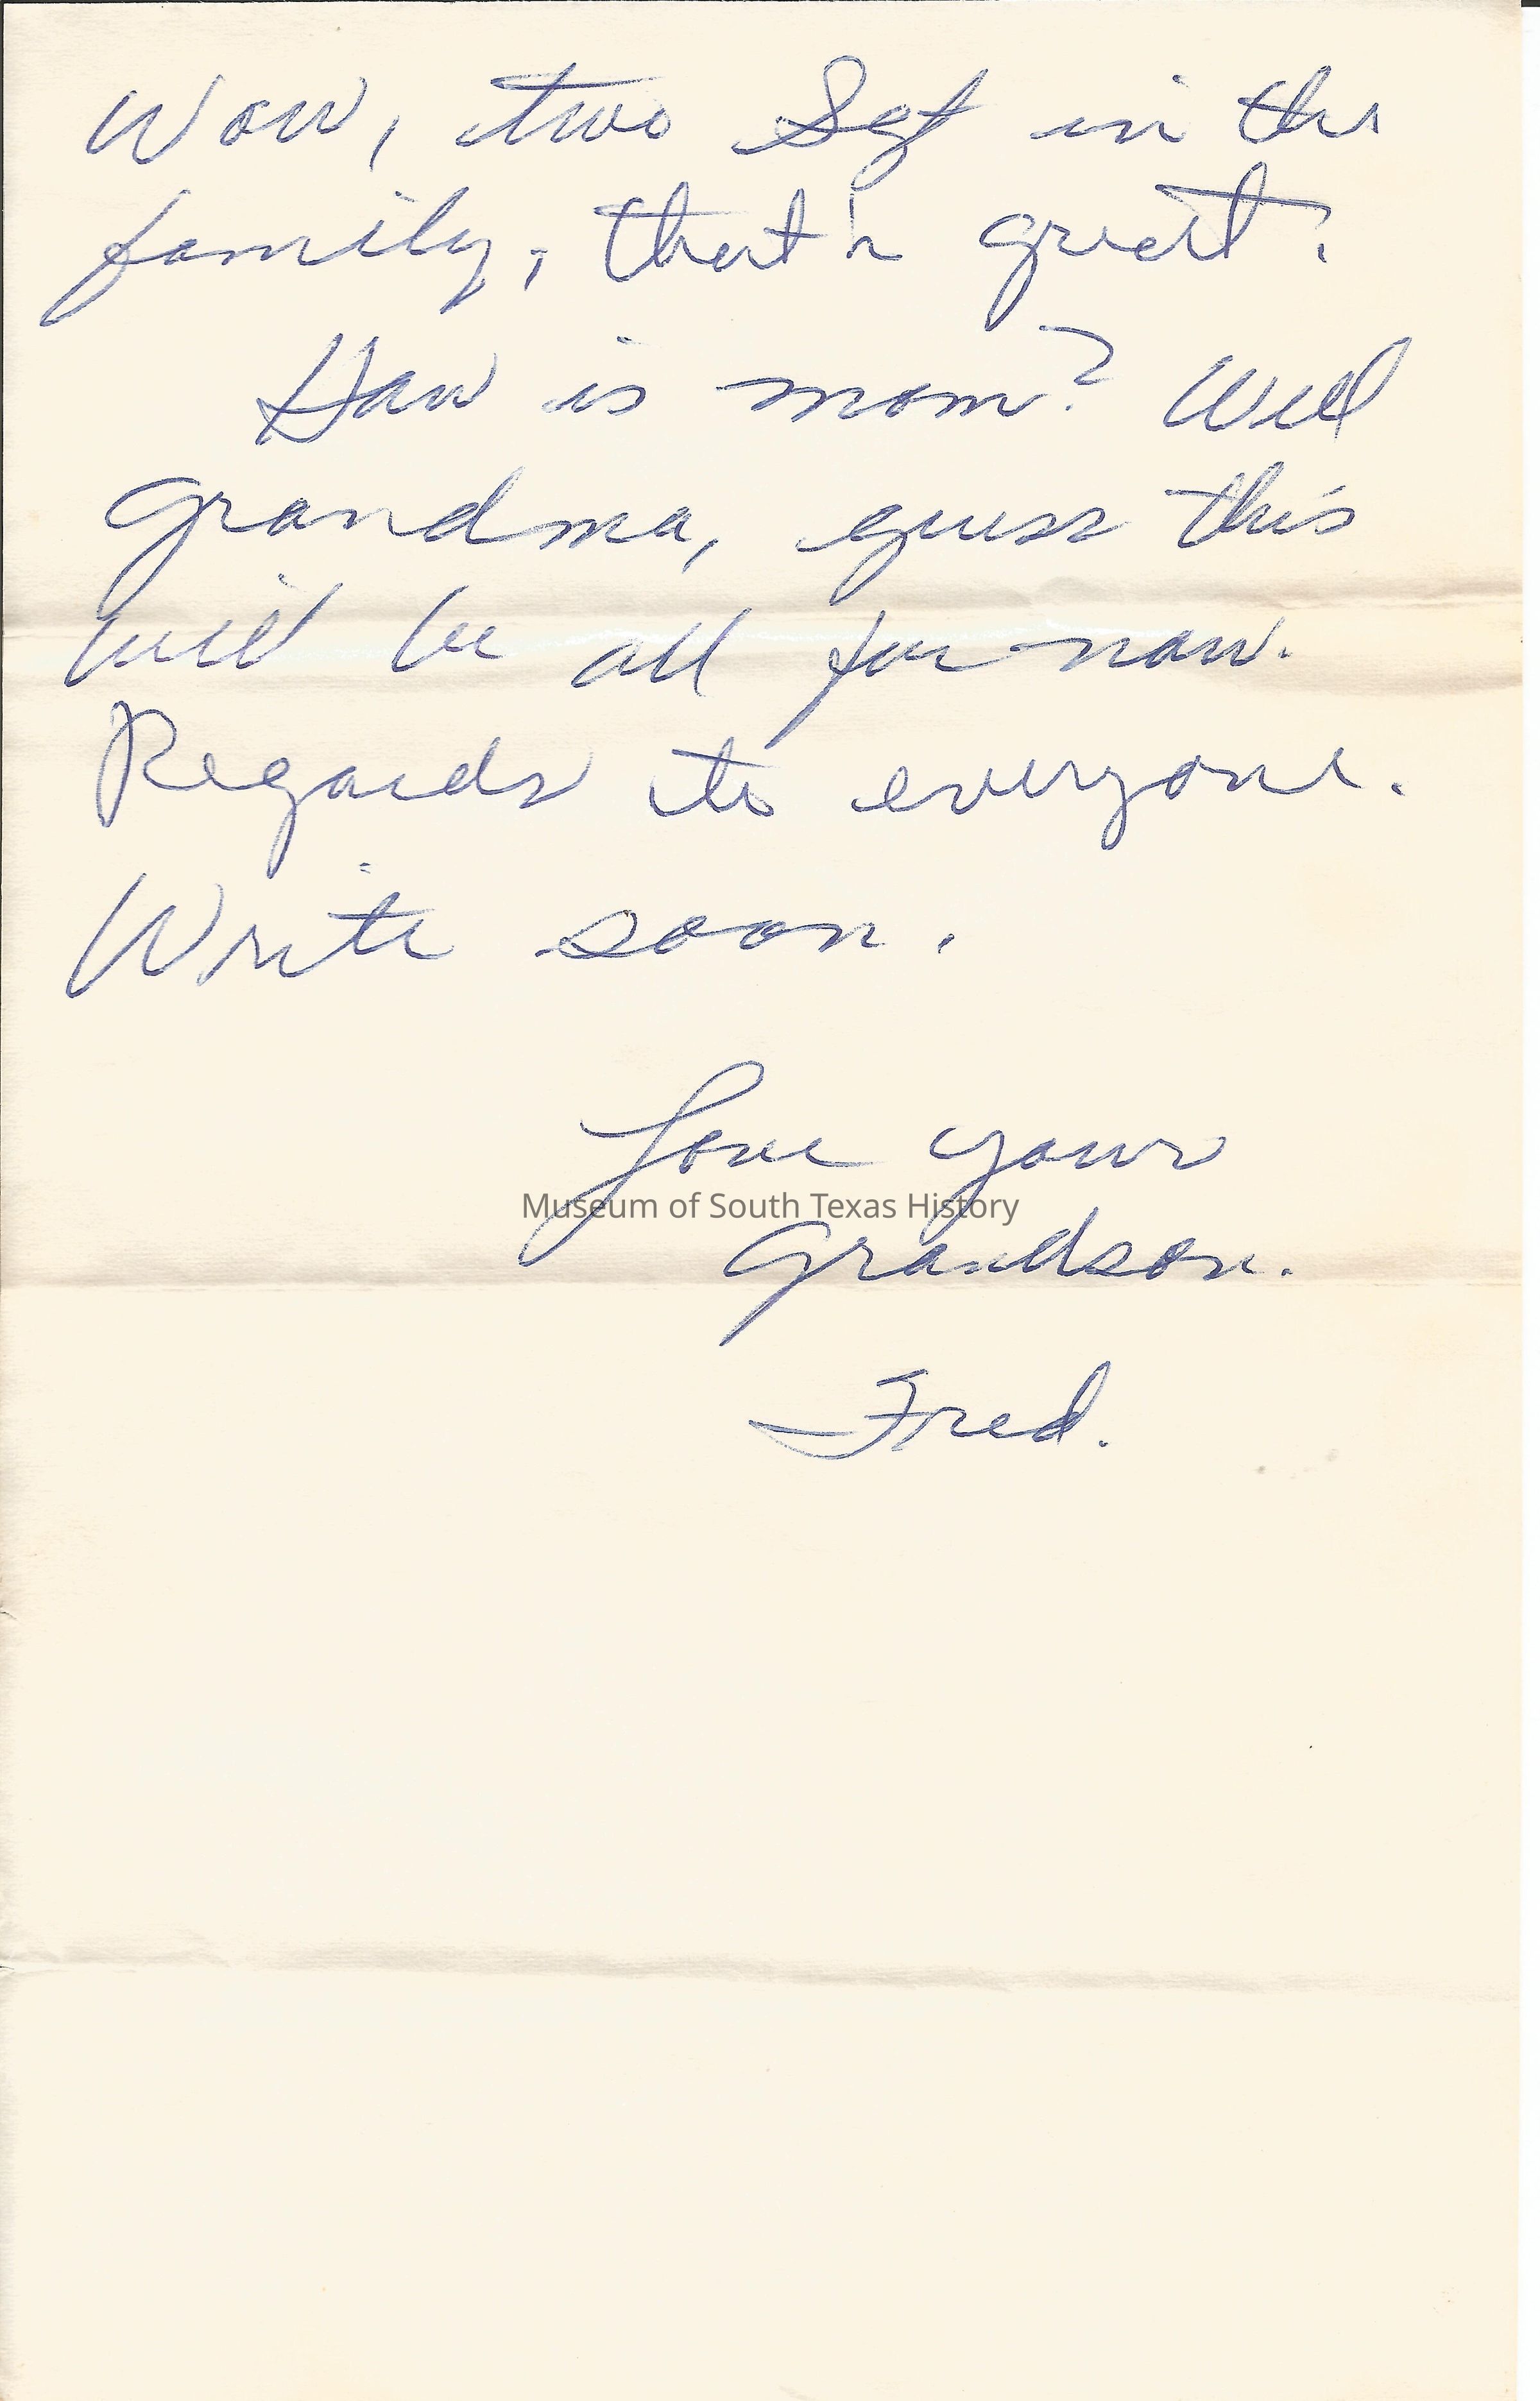 Wow, two Sgt in the
family, that's great.
How is mom? Well
Grandma, guess this
will be all for now.
Regards to everyone.
Write soon.
Love your
Museum of South Texas History
Grandson.
Fred.